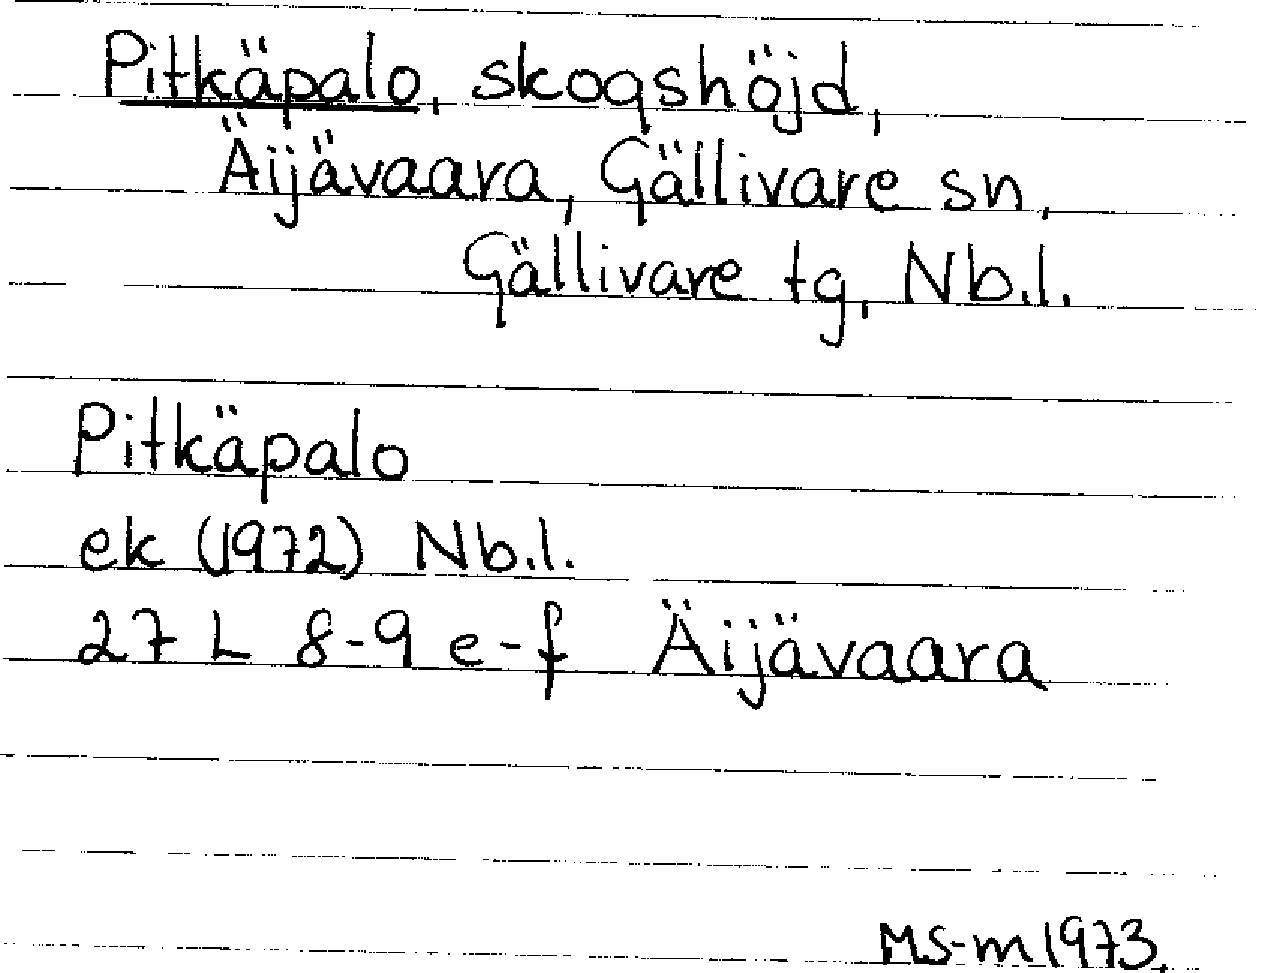 Pitkäpalo, skogshöjd,
Äijävaara, Gällivare sn,
Gällivare tg, Nb.l.
Pitkäpalo
ek (1972) Nb.l.
27 L 8-9 e-f Äijävaara
MS-m 1973.